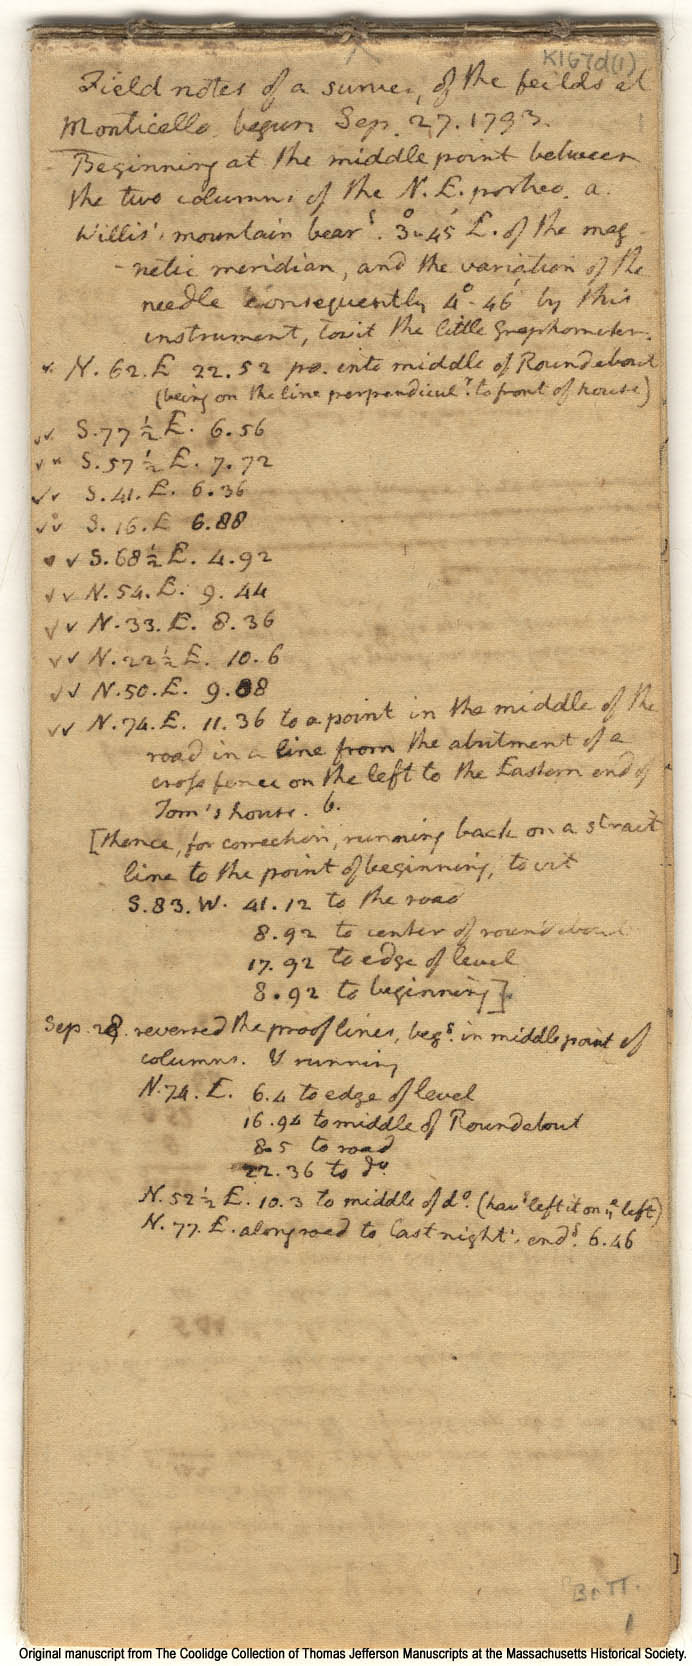 K167d(1)
Field notes of a survey of the feilds at
Monticello begun Sep. 27. 1793.
Beginning at the middle point between
the two columns of the N.E. portico. a.
Willis's mountain bears. 3°-45' E. of the mag-
netic meridian, and the variation of the
needle consequently 4°-46' by this
instrument, towit the little graphometer.
N. 62. E 22.52 po. into middle of Roundabout
(being on the line perpendiculr. to front of house)
S. 77½ E. 6.56
S. 57½ E. 7.72
S. 41. E. 6.36
S. 16. E 6.88
S. 68½ E. 4.92
N. 54. E. 9.44
N. 33. E. 8.36
N. 22½ E. 10.6
N. 50. E. 9.08
N. 74. E. 11.36 to a point in the middle of the
road in a line from the abutment of a
cross fence on the left to the Eastern end of
Tom's house. b.
[thence, for correction, running back on a strait
line to the point of beginning, towit
S. 83. W. 41.12 to the road
8.92 to center of roundabout
17.92 to edge of level
8.92 to beginning].
Sep. 28. reversed the proof lines, begg. in middle point of
columns. & running
N. 74. E. 6.4 to edge of level
16.94 to middle of Roundabout
8.5 to road
22.36 to do.
N. 52½ E. 10.3 to middle of do. (havg left it on ye left)
N. 77. E. along road to last night's endg. 6.46
BOTT.
1
Original manuscript from The Coolidge Collection of Thomas Jefferson Manuscripts at the Massachusetts Historical Society.